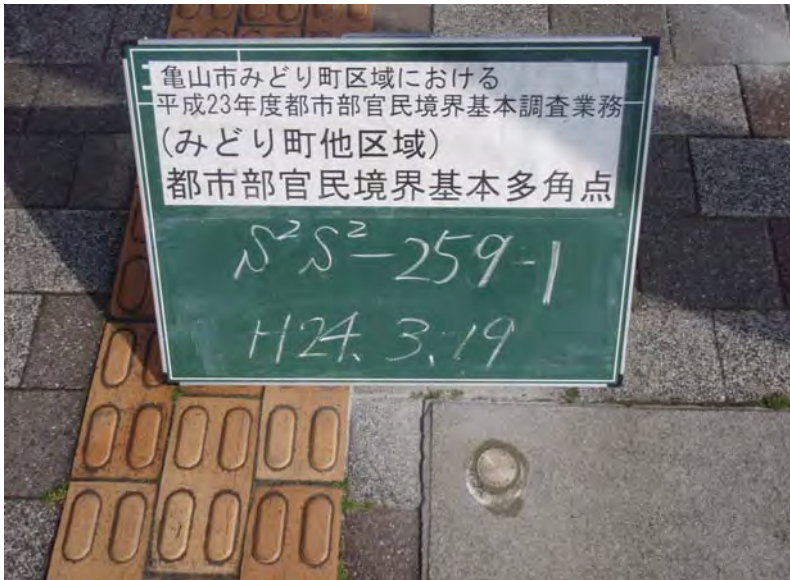 亀山市みどり町区域における
平成23年度都市部官民境界基本調査業務
(みどり町他区域)
都市部官民境界基本多角点
S²S²-259-1
H24.3.19